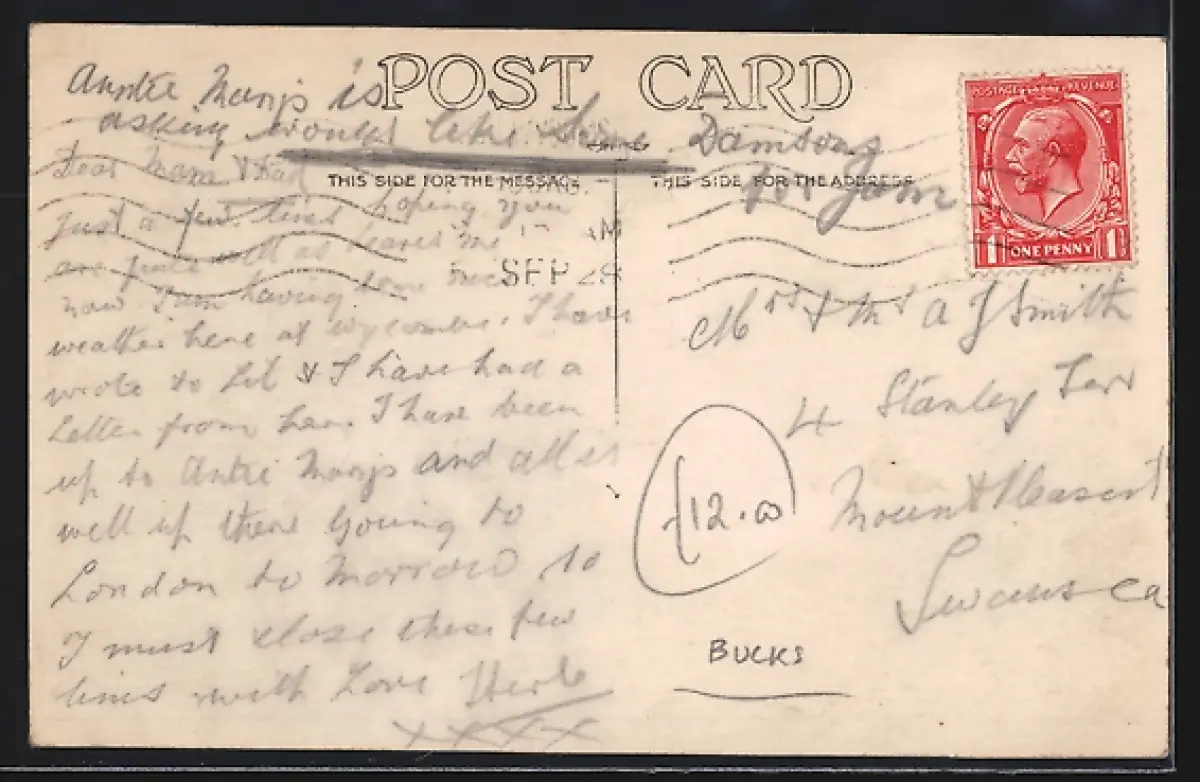 POST CARD
Auntie Marys is
asking would like some Damsons
for Jam
THIS SIDE FOR THE MESSAGE.
THIS SIDE FOR THE ADDRESS
Dear Mam & Dad
Just a few lines hoping you
are quite well as leaves me
now I am having some nice
weather here at Wycombe. I have
wrote to Lil & I have had a
letter from her. I have been
up to Antie Marys and all is
well up there Going to
London to Morrow so
I must close these few
lines with Love Herb
XXXX
AM
SEP 28
POSTAGE REVENUE
1 ONE PENNY 1
Mrs & Mr A J Smith
4 Stanley Terr
Mount Pleasant
Swansea
£12.00
BUCKS